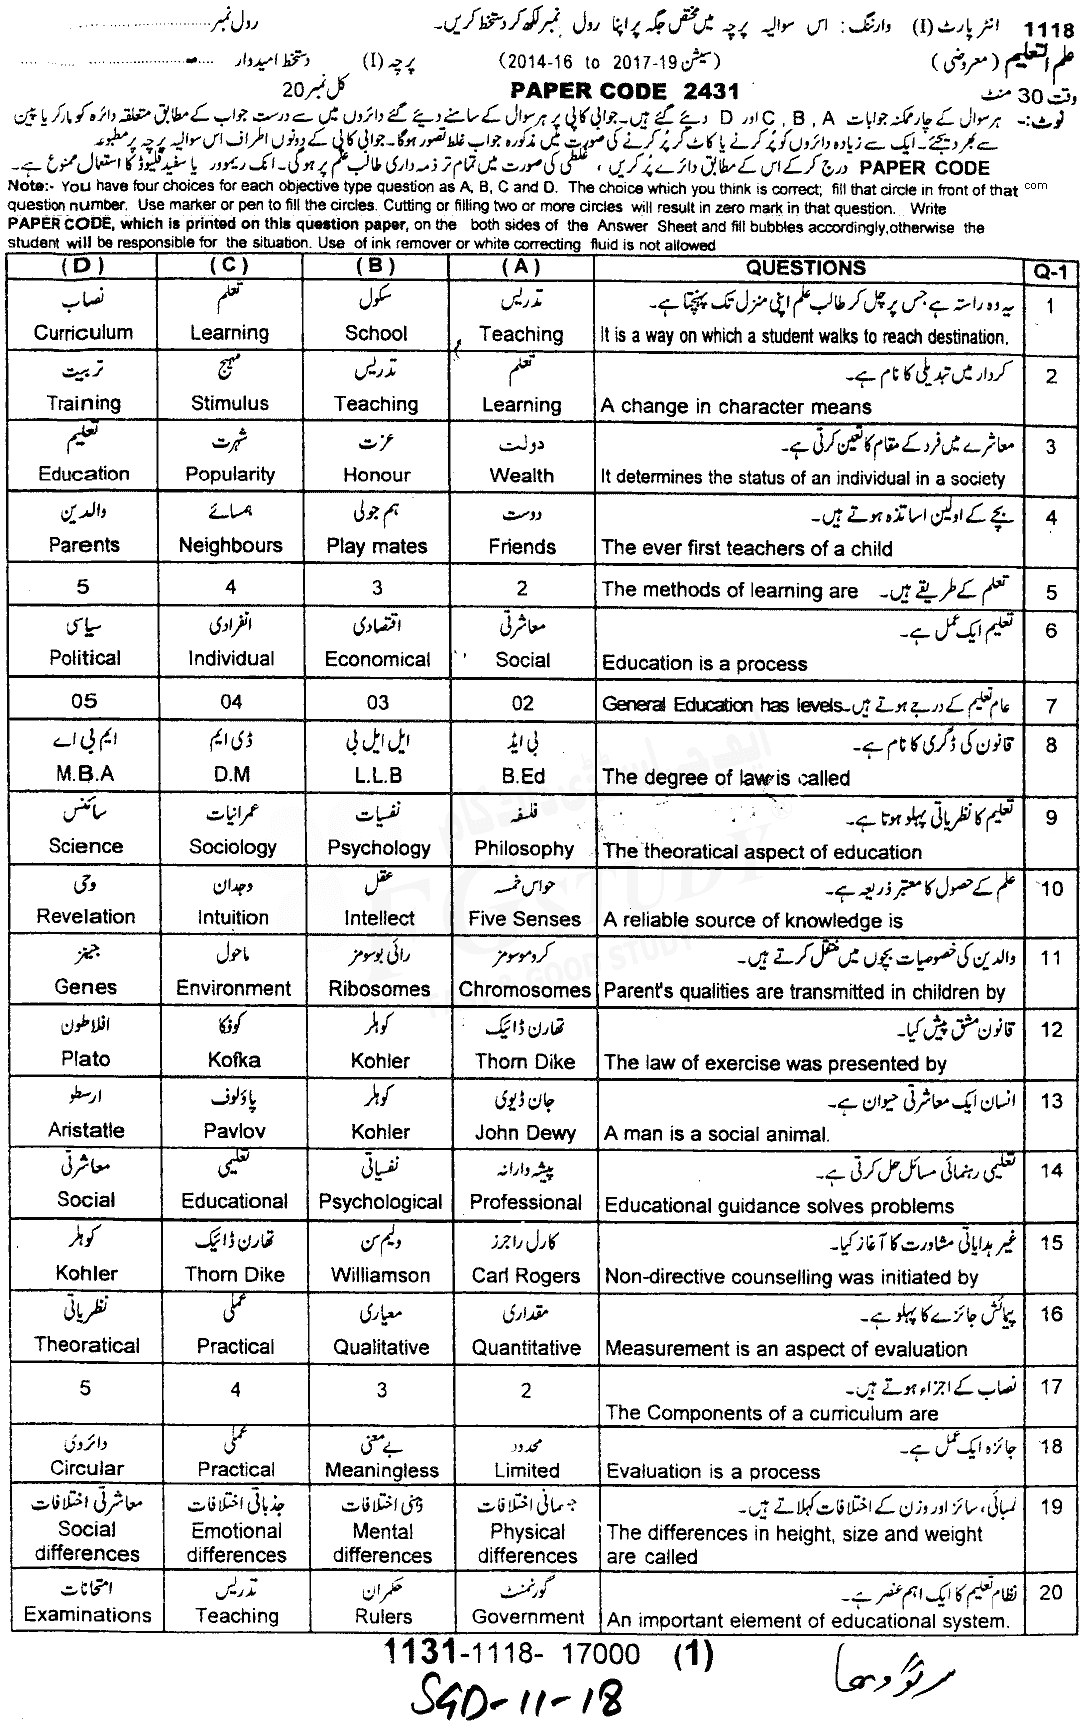 1118 انٹر پارٹ (I) وارننگ: اس سوالیہ پرچہ میں مختص جگہ پر اپنا رول نمبر لکھ کر دستخط کریں۔ رول نمبر
علم التعلیم (معروضی) (سیشن 19-2017 to 2014-16) پرچہ (I) دستخط امیدوار
وقت 30 منٹ PAPER CODE 2431 کل نمبر 20
نوٹ:- ہر سوال کے چار ممکنہ جوابات C, B, A اور D دیئے گئے ہیں۔ جوابی کاپی پر ہر سوال کے سامنے دیئے گئے دائروں میں سے درست جواب کے مطابق متعلقہ دائرہ کو مارکر یا پین
سے بھر دیجئے۔ ایک سے زیادہ دائروں کو پُر کرنے یا کاٹ کر پُر کرنے کی صورت میں مذکورہ جواب غلط تصور ہوگا۔ جوابی کاپی کے دونوں اطراف اس سوالیہ پرچہ پر مطبوعہ
PAPER CODE درج کرکے اس کے مطابق دائرے پُر کریں، غلطی کی صورت میں تمام تر ذمہ داری طالب علم پر ہوگی۔ انک ریموور یا سفید فلیوڈ کا استعمال ممنوع ہے۔
Note:- You have four choices for each objective type question as A, B, C and D. The choice which you think is correct; fill that circle in front of that com
question number. Use marker or pen to fill the circles. Cutting or filling two or more circles will result in zero mark in that question. Write
PAPER CODE, which is printed on this question paper, on the both sides of the Answer Sheet and fill bubbles accordingly,otherwise the
student will be responsible for the situation. Use of ink remover or white correcting fluid is not allowed
(D) (C) (B) (A) QUESTIONS Q-1
نصاب تعلم سکول تدریس یہ وہ راستہ ہے جس پر چل کر طالب علم اپنی منزل تک پہنچتا ہے۔ 1
Curriculum Learning School Teaching It is a way on which a student walks to reach destination.
تربیت مہیج تدریس تعلم کردار میں تبدیلی کا نام ہے۔ 2
Training Stimulus Teaching Learning A change in character means
تعلیم شہرت عزت دولت معاشرے میں فرد کے مقام کا تعین کرتی ہے۔ 3
Education Popularity Honour Wealth It determines the status of an individual in a society
والدین ہمسائے ہم جولی دوست بچے کے اولین اساتذہ ہوتے ہیں۔ 4
Parents Neighbours Play mates Friends The ever first teachers of a child
5 4 3 2 The methods of learning are تعلم کے طریقے ہیں۔ 5
سیاسی انفرادی اقتصادی معاشرتی تعلیم ایک عمل ہے۔ 6
Political Individual Economical Social Education is a process
05 04 03 02 General Education has levels عام تعلیم کے درجے ہوتے ہیں۔ 7
ایم بی اے ڈی ایم ایل ایل بی بی ایڈ قانون کی ڈگری کا نام ہے۔ 8
M.B.A D.M L.L.B B.Ed The degree of law is called
سائنس عمرانیات نفسیات فلسفہ تعلیم کا نظریاتی پہلو ہوتا ہے۔ 9
Science Sociology Psychology Philosophy The theoratical aspect of education
وحی وجدان عقل حواس خمسہ علم کے حصول کا معتبر ذریعہ ہے۔ 10
Revelation Intuition Intellect Five Senses A reliable source of knowledge is
جینز ماحول رائی بوسومز کروموسومز والدین کی خصوصیات بچوں میں منتقل کرتے ہیں۔ 11
Genes Environment Ribosomes Chromosomes Parent's qualities are transmitted in children by
افلاطون کوفکا کوہلر تھارن ڈائیک قانون مشق پیش کیا۔ 12
Plato Kofka Kohler Thorn Dike The law of exercise was presented by
ارسطو پاؤلوف کوہلر جان ڈیوی انسان ایک معاشرتی حیوان ہے۔ 13
Aristatle Pavlov Kohler John Dewy A man is a social animal.
معاشرتی تعلیمی نفسیاتی پیشہ دارانہ تعلیمی رہنمائی مسائل حل کرتی ہے۔ 14
Social Educational Psychological Professional Educational guidance solves problems
کوہلر تھارن ڈائیک ولیم سن کارل راجرز غیر ہدایاتی مشاورت کا آغاز کیا۔ 15
Kohler Thorn Dike Williamson Carl Rogers Non-directive counselling was initiated by
نظریاتی عملی معیاری مقداری پیمائش جائزے کا پہلو ہے۔ 16
Theoratical Practical Qualitative Quantitative Measurement is an aspect of evaluation
5 4 3 2 نصاب کے اجزاء ہوتے ہیں۔ 17
The Components of a curriculum are
دائروی عملی بے معنی محدود جائزہ ایک عمل ہے۔ 18
Circular Practical Meaningless Limited Evaluation is a process
معاشرتی اختلافات جذباتی اختلافات ذہنی اختلافات جسمانی اختلافات لمبائی، سائز اور وزن کے اختلافات کہلاتے ہیں۔ 19
Social Emotional Mental Physical The differences in height, size and weight
differences differences differences differences are called
امتحانات تدریس حکمران گورنمنٹ نظام تعلیم کا ایک اہم عنصر ہے۔ 20
Examinations Teaching Rulers Government An important element of educational system.
1131-1118- 17000 (1)
SGD-11-18 سرگودھا